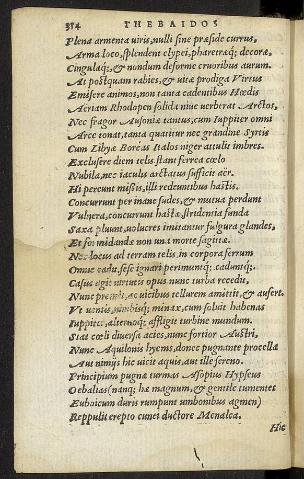 384 THEBAIDOS
Plena armenta viris, nulli sine præside currus,
Arma loco, splendent clypei, pharetræq; decoræ,
Cingulaq;, & nondum deforme cruoribus aurum.
At postquam rabies, & vitæ prodiga Virtus
Emisere animos, non tanta cadentibus Hœdis
Aeriam Rhodopen solida niue verberat Arctos,
Nec fragor Ausoniæ tantus, cum Iuppiter omni
Arce tonat, tanta quatitur nec grandine Syrtis
Cum Libyæ Boreas Italos niger attulit imbres.
Exclusere diem telis, stant ferrea cœlo
Nubila, nec iaculis arctatus sufficit aër.
Hi pereunt missis, illi redeuntibus hastis.
Concurrunt per inane sudes, & mutua perdunt
Vulnera, concurrunt hastæ, stridentia funda
Saxa pluunt, uolucres imitantur fulgura glandes,
Et formidandæ non una morte sagittæ.
Nec locus ad terram telis, in corpora ferrum
Omne cadit, sepe ignari perimuntq; caduntq;.
Casus agit virtutis opus nunc turba recedit,
Nunc premit, ac uicibus tellurem amittit, & aufert.
Vt uentis, nimbisq; minax, cum soluit habenas
Iuppiter, alternoq; affligit turbine mundum.
Stat cœli diuersa acies, nunc fortior Austri,
Nunc Aquilonis hyems, donec pugnante procella
Aut nimiis hic uicit aquis, aut ille sereno.
Principium pugnæ turmas Asopius Hypseus
Oebalias (nanq; hæ magnum, & gentile tumentes
Euboicum duris rumpunt umbonibus agmen)
Reppulit erepto cunei ductore Menalca.
Hic